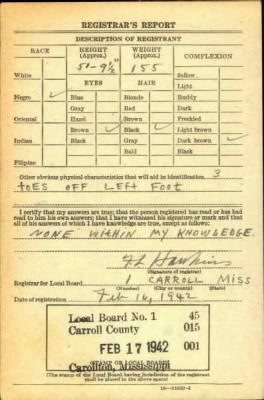 REGISTRAR'S REPORT
DESCRIPTION OF REGISTRANT
RACE HEIGHT (Approx.) WEIGHT (Approx.) COMPLEXION
5'-9½" 155
White Sallow
EYES HAIR Light
Negro ✓ Blue Blonde Ruddy
Gray Red Dark
Oriental Hazel Brown Freckled
Brown ✓ Black ✓ Light brown
Indian Black Gray Dark brown ✓
Bald Black
Filipino
Other obvious physical characteristics that will aid in identification 3
TOES OFF LEFT FOOT
I certify that my answers are true; that the person registered has read or has had
read to him his own answers; that I have witnessed his signature or mark and that
all of his answers of which I have knowledge are true, except as follows:
NONE WITHIN MY KNOWLEDGE.
Hawkins
(Signature of registrar)
Registrar for Local Board 1 CARROLL MISS
(Number) (City or county) (State)
Date of registration Feb 16, 1942
Local Board No. 1 45
Carroll County 015
FEB 17 1942 001
(STAMP OF LOCAL BOARD)
Carollton, Mississippi
(The stamp of the Local Board having jurisdiction of the registrant
shall be placed in the above space.)